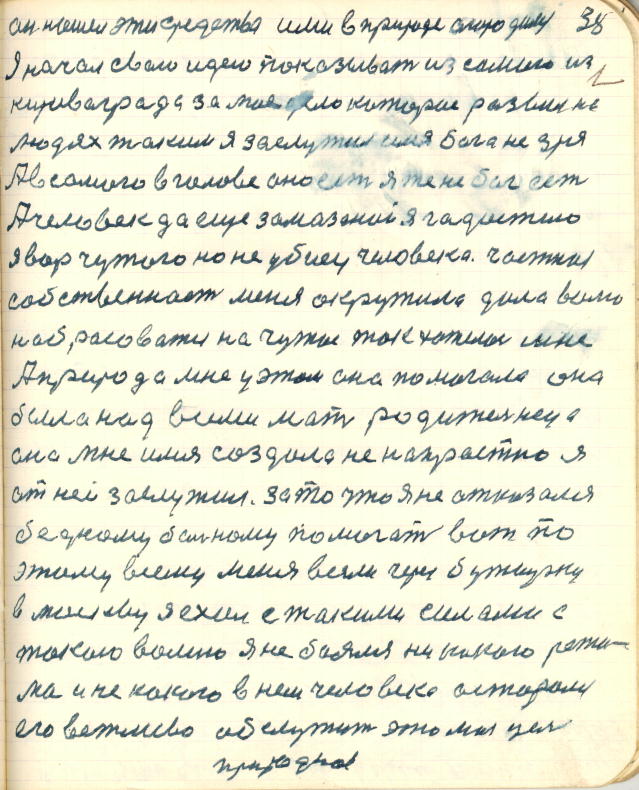 он нашел эти средства или в природе 38
Я начал свою идею показыват из самого из
кироваграда за мое дело которое развил на
людях таким я заслужил имя Бога не зря
А в самого в голове оно сет я же не бог сет
А человек да еще замазаной я гадостию
я вор чужого но не убиец человека. частная
собственност меня окружила дала волю
набрасоватся на чужое так хотелос мне
А природа мне у этом она помогала она
была над всеми мат родителнеца
она мне имя создала не напрастно я
от ней заслужил. за то что я не отказался
бедному болному помогат вот по
этому всему меня везли чере бутирку
в москву я ехал с такими силами с
такою волию я не боялся никакого режи-
ма и не какого в нем человека старался
его вежливо обслужит это моя цел
природная